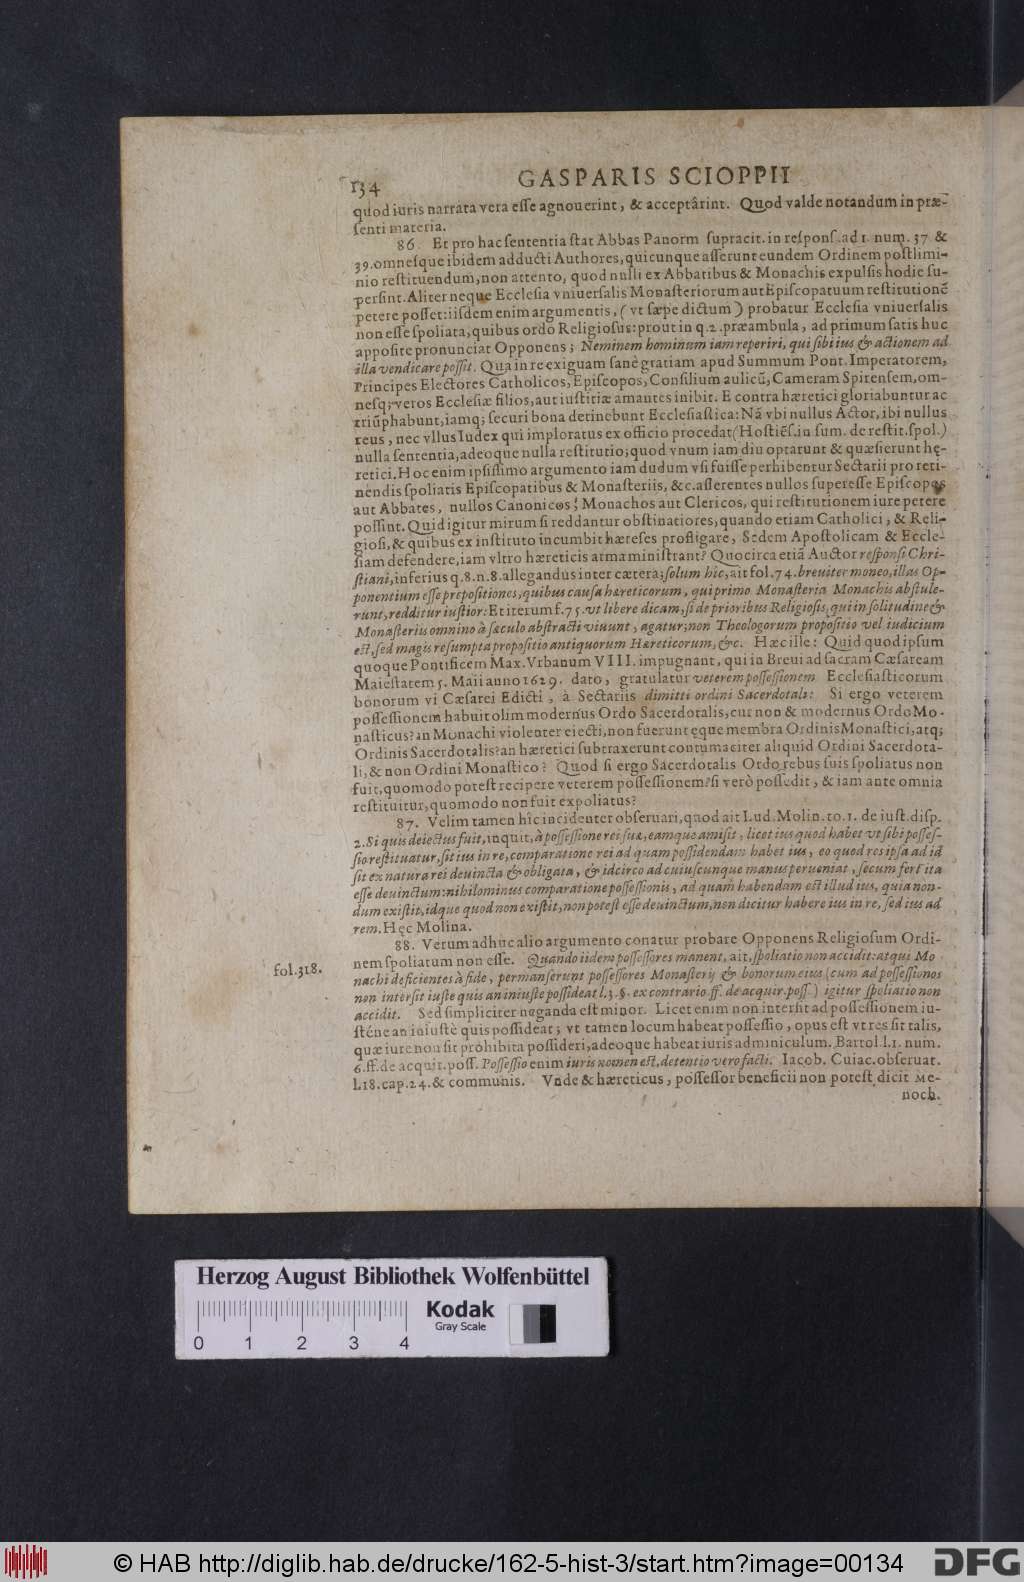 134
GASPARIS SCIOPPII
quod iuris narrata vera esse agnouerint, & acceptârint. Quod valde notandum in præ-
senti materia.
86. Et pro hac sententia stat Abbas Panorm supracit. in respons. ad 1. num. 37 &
39. omnesque ibidem adducti Authores, quicunque asserunt eundem Ordinem postlimi-
nio restituendum, non attento, quod nulli ex Abbatibus & Monachis expulsis hodie su-
persint. Aliter neque Ecclesia vniuersalis Monasteriorum aut Episcopatuum restitutionē
petere posset: iisdem enim argumentis, (vt sæpe dictum) probatur Ecclesia vniuersalis
non esse spoliata, quibus ordo Religiosus: prout in q. 2. præambula, ad primum satis huc
apposite pronunciat Opponens; Neminem hominum iam reperiri, qui sibi ius & actionem ad
illa vendicare possit. Qua in re exiguam sanè gratiam apud Summum Pont. Imperatorem,
Principes Electores Catholicos, Episcopos, Consilium aulicū, Cameram Spirensem, om-
nesq; veros Ecclesiæ filios, aut iustitiæ amantes inibit. E contra hæretici gloriabuntur ac
triūphabunt, iamq; securi bona detinebunt Ecclesiastica: Nā vbi nullus Actor, ibi nullus
reus, nec vllus Iudex qui imploratus ex officio procedat (Hostiēs. in sum. de restit. spol.)
nulla sententia, adeoque nulla restitutio; quod vnum iam diu optarunt & quæsierunt hę-
retici. Hoc enim ipsissimo argumento iam dudum vsi fuisse perhibentur Sectarii pro reti-
nendis spoliatis Episcopatibus & Monasteriis, &c. asserentes nullos superesse Episcopos
aut Abbates, nullos Canonicos, Monachos aut Clericos, qui restitutionem iure petere
possint. Quid igitur mirum si reddantur obstinatiores, quando etiam Catholici, & Reli-
giosi, & quibus ex instituto incumbit hæreses profligare, Sedem Apostolicam & Eccle-
siam defendere, iam vltro hæreticis arma ministrant? Quocirca etiā Auctor responsi Chri-
stiani, inferius q. 8. n. 8. allegandus inter cætera; solum hic, ait fol. 74. breuiter moneo, illas Op-
ponentium esse prepositiones, quibus causa hæreticorum, qui primo Monasteria Monachis abstule-
runt, redditur iustior: Et iterum f. 75. vt libere dicam, si de prioribus Religiosis, qui in solitudine &
Monasterius omnino à sæculo abstracti viuunt, agatur; non Theologorum propositio vel iudicium
est, sed magis resumpta propositio antiquorum Hæreticorum, &c. Hæc ille: Quid quod ipsum
quoque Pontificem Max. Vrbanum VIII. impugnant, qui in Breui ad sacram Cæsaream
Maiestatem 5. Maii anno 1629. dato, gratulatur veterem possessionem Ecclesiasticorum
bonorum vi Cæsarei Edicti, à Sectariis dimitti ordini Sacerdotali: Si ergo veterem
possessionem habuit olim modernus Ordo Sacerdotalis, cur non & modernus Ordo Mo-
nasticus? an Monachi violenter eiecti, non fuerunt ęque membra Ordinis Monastici, atq;
Ordinis Sacerdotalis? an hæretici subtraxerunt contumaciter aliquid Ordini Sacerdota-
li, & non Ordini Monastico? Quod si ergo Sacerdotalis Ordo rebus suis spoliatus non
fuit, quomodo potest recipere veterem possessionem? si verò possedit, & iam ante omnia
restituitur, quomodo non fuit expoliatus?
87. Velim tamen hîc incidenter obseruari, quod ait Lud. Molin. to. 1. de iust. disp.
2. Si quis deiectus fuit, inquit, à possessione rei suæ, eamque amisit, licet ius quod habet vt sibi posses-
sio restituatur, sit ius in re, comparatione rei ad quam possidendam habet ius, eo quod res ipsa ad id
sit ex natura rei deuincta & obligata, & idcirco ad cuiuscunque manus perueniat, secum fert ita
esse deuinctum: nihilominus comparatione possessionis, ad quam habendam est illud ius, quia non-
dum existit, idque quod non existit, non potest esse deuinctum, non dicitur habere ius in re, sed ius ad
rem. Hęc Molina.
88. Verum adhuc alio argumento conatur probare Opponens Religiosum Ordi-
nem spoliatum non esse. Quando iidem possessores manent, ait, spoliatio non accidit: atqui Mo
fol. 318.
nachi deficientes à fide, permanserunt possessores Monasterij & bonorum eius (cum ad possessionos
non intersit iuste quis an iniuste possideat l. 3. §. ex contrario ff. de acquir. poss.) igitur spoliatio non
accidit. Sed simpliciter neganda est minor. Licet enim non intersit ad possessionem iu-
sténe an iniustè quis possideat; vt tamen locum habeat possessio, opus est vt res sit talis,
quæ iure non sit prohibita possideri, adeoque habeat iuris adminiculum. Bartol. l. 1. num.
6. ff. de acquir. poss. Possessio enim iuris nomen est, detentio vero facti. Iacob. Cuiac. obseruat.
l. 18. cap. 24. & communis. Vnde & hæreticus, possessor beneficii non potest dici t Me-
noch.
Herzog August Bibliothek Wolfenbüttel
0 1 2 3 4
Kodak
Gray Scale
© HAB http://diglib.hab.de/drucke/162-5-hist-3/start.htm?image=00134
DFG